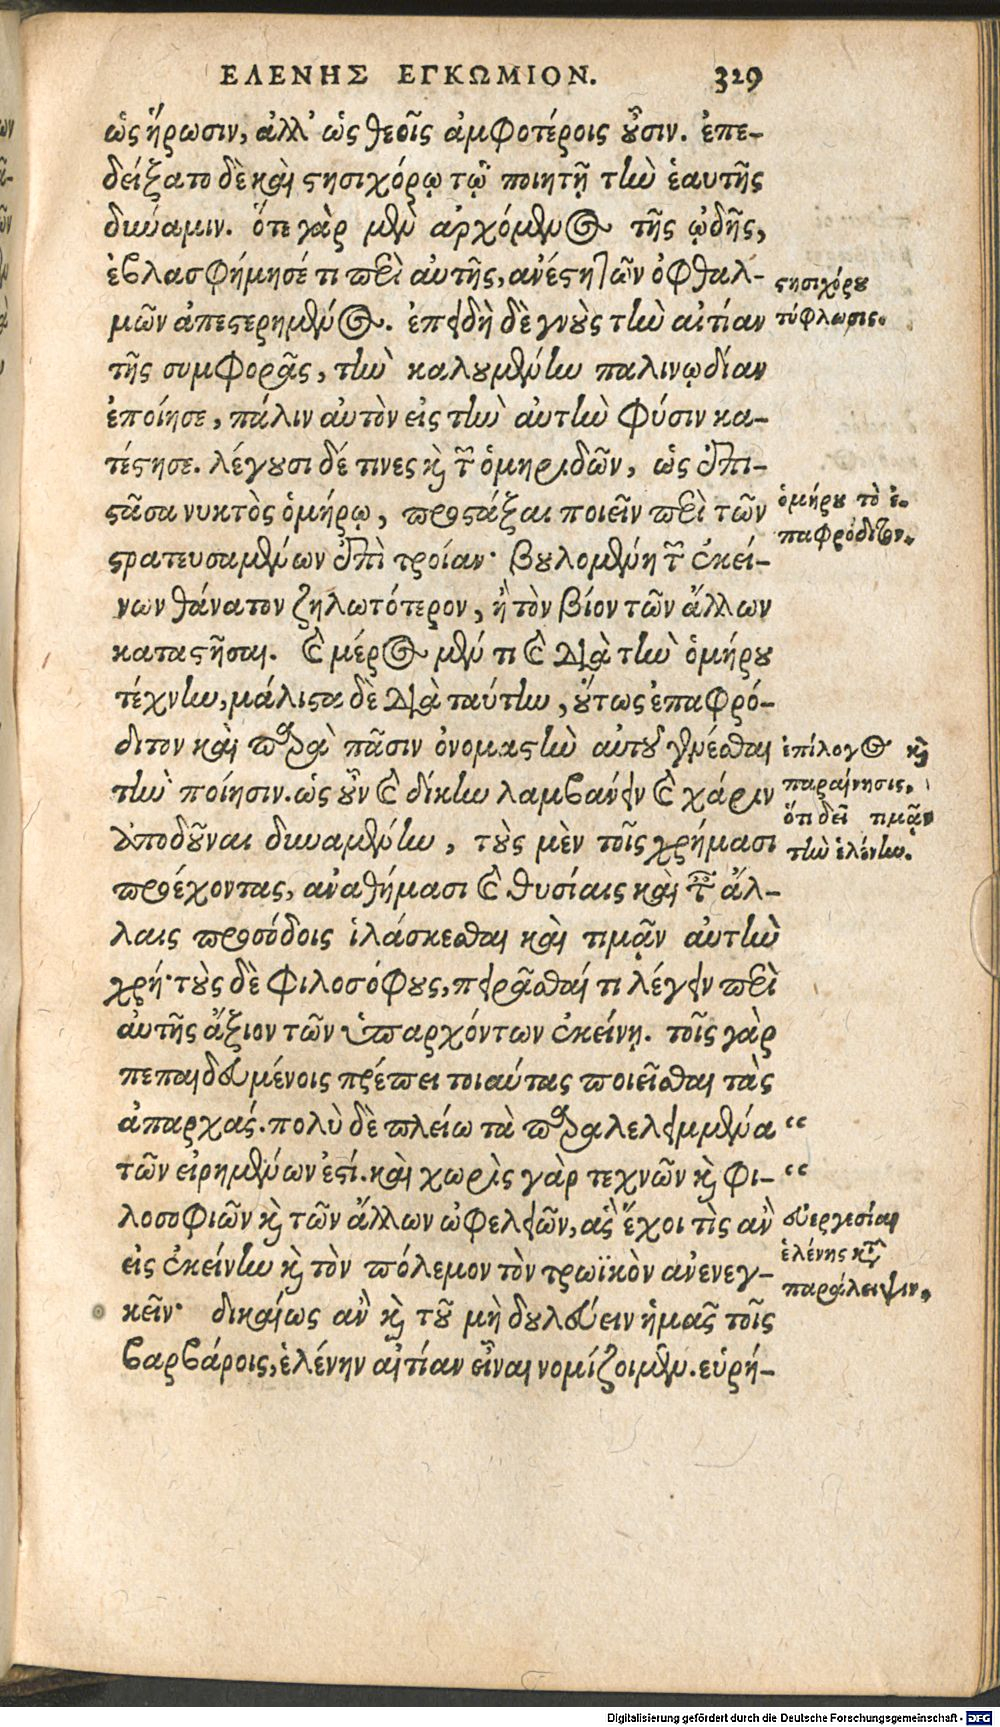 ΕΛΕΝΗΣ ΕΓΚΩΜΙΟΝ. 329
ὡς ἥρωσιν, ἀλλ' ὡς θεοῖς ἀμφοτέροις οὖσιν. ἐπε-
δείξατο δὲ καὶ στησιχόρῳ τῷ ποιητῇ τὴν ἑαυτῆς
δύναμιν. ὅτε γὰρ μὲν ἀρχόμενος τῆς ᾠδῆς,
ἐβλασφήμησέ τι περὶ αὐτῆς, ἀνέστη τῶν ὀφθαλ-
μῶν ἀπεστερημένος. ἐπειδὴ δὲ γνοὺς τὴν αἰτίαν
τῆς συμφορᾶς, τὴν καλουμένην παλινῳδίαν
ἐποίησε, πάλιν αὐτὸν εἰς τὴν αὐτὴν φύσιν κα-
τέστησε. λέγουσι δέ τινες καὶ τῶν ὁμηριδῶν, ὡς ἐπι-
στᾶσα νυκτὸς ὁμήρῳ, προστάξαι ποιεῖν περὶ τῶν
στρατευσαμένων ἐπὶ τροίαν· βουλομένη τῶν ἐκεί-
νων θάνατον ζηλωτότερον, ἢ τὸν βίον τῶν ἄλλων
καταστῆσαι. καὶ μέρος μέν τι καὶ διὰ τὴν ὁμήρου
τέχνην, μάλιστα δὲ διὰ ταύτην, οὕτως ἐπαφρό-
διτον καὶ παρὰ πᾶσιν ὀνομαστὴν αὐτοῦ γενέσθαι
τὴν ποίησιν. ὡς οὖν καὶ δίκην λαμβάνειν καὶ χάριν
ἀποδοῦναι δυναμένην, τοὺς μὲν τοῖς χρήμασι
προέχοντας, ἀναθήμασι καὶ θυσίαις καὶ ταῖς ἄλ-
λαις προσόδοις ἱλάσκεσθαι καὶ τιμᾷν αὐτὴν
χρή· τοὺς δὲ φιλοσόφους, πειρᾶσθαί τι λέγειν περὶ
αὐτῆς ἄξιον τῶν ὑπαρχόντων ἐκείνῃ. τοῖς γὰρ
πεπαιδευμένοις πρέπει τοιαύτας ποιεῖσθαι τὰς
ἀπαρχάς. πολὺ δὲ πλείω τὰ παραλελειμμένα “
τῶν εἰρημένων ἐστί. καὶ χωρὶς γὰρ τεχνῶν καὶ φι- “
λοσοφιῶν καὶ τῶν ἄλλων ὠφελειῶν, ἃς ἔχοι τὶς ἂν
εἰς ἐκείνην καὶ τὸν πόλεμον τὸν τρωϊκὸν ἀνενεγ-
κεῖν· δικαίως ἂν καὶ τοῦ μὴ δουλεύειν ἡμᾶς τοῖς
βαρβάροις, ἑλένην αἰτίαν εἶναι νομίζοιμεν. εὑρή-
στησιχόρου
τύφλωσις.
ὁμήρου τὸ ἐ-
παφρόδιτον.
ἐπίλογος καὶ
παραίνησις,
ὅτι δεῖ τιμᾷν
τὴν ἑλένην.
εὐεργεσίαι
ἑλένης κατὰ
παράλειψιν.
Digitalisierung gefördert durch die Deutsche Forschungsgemeinschaft - DFG